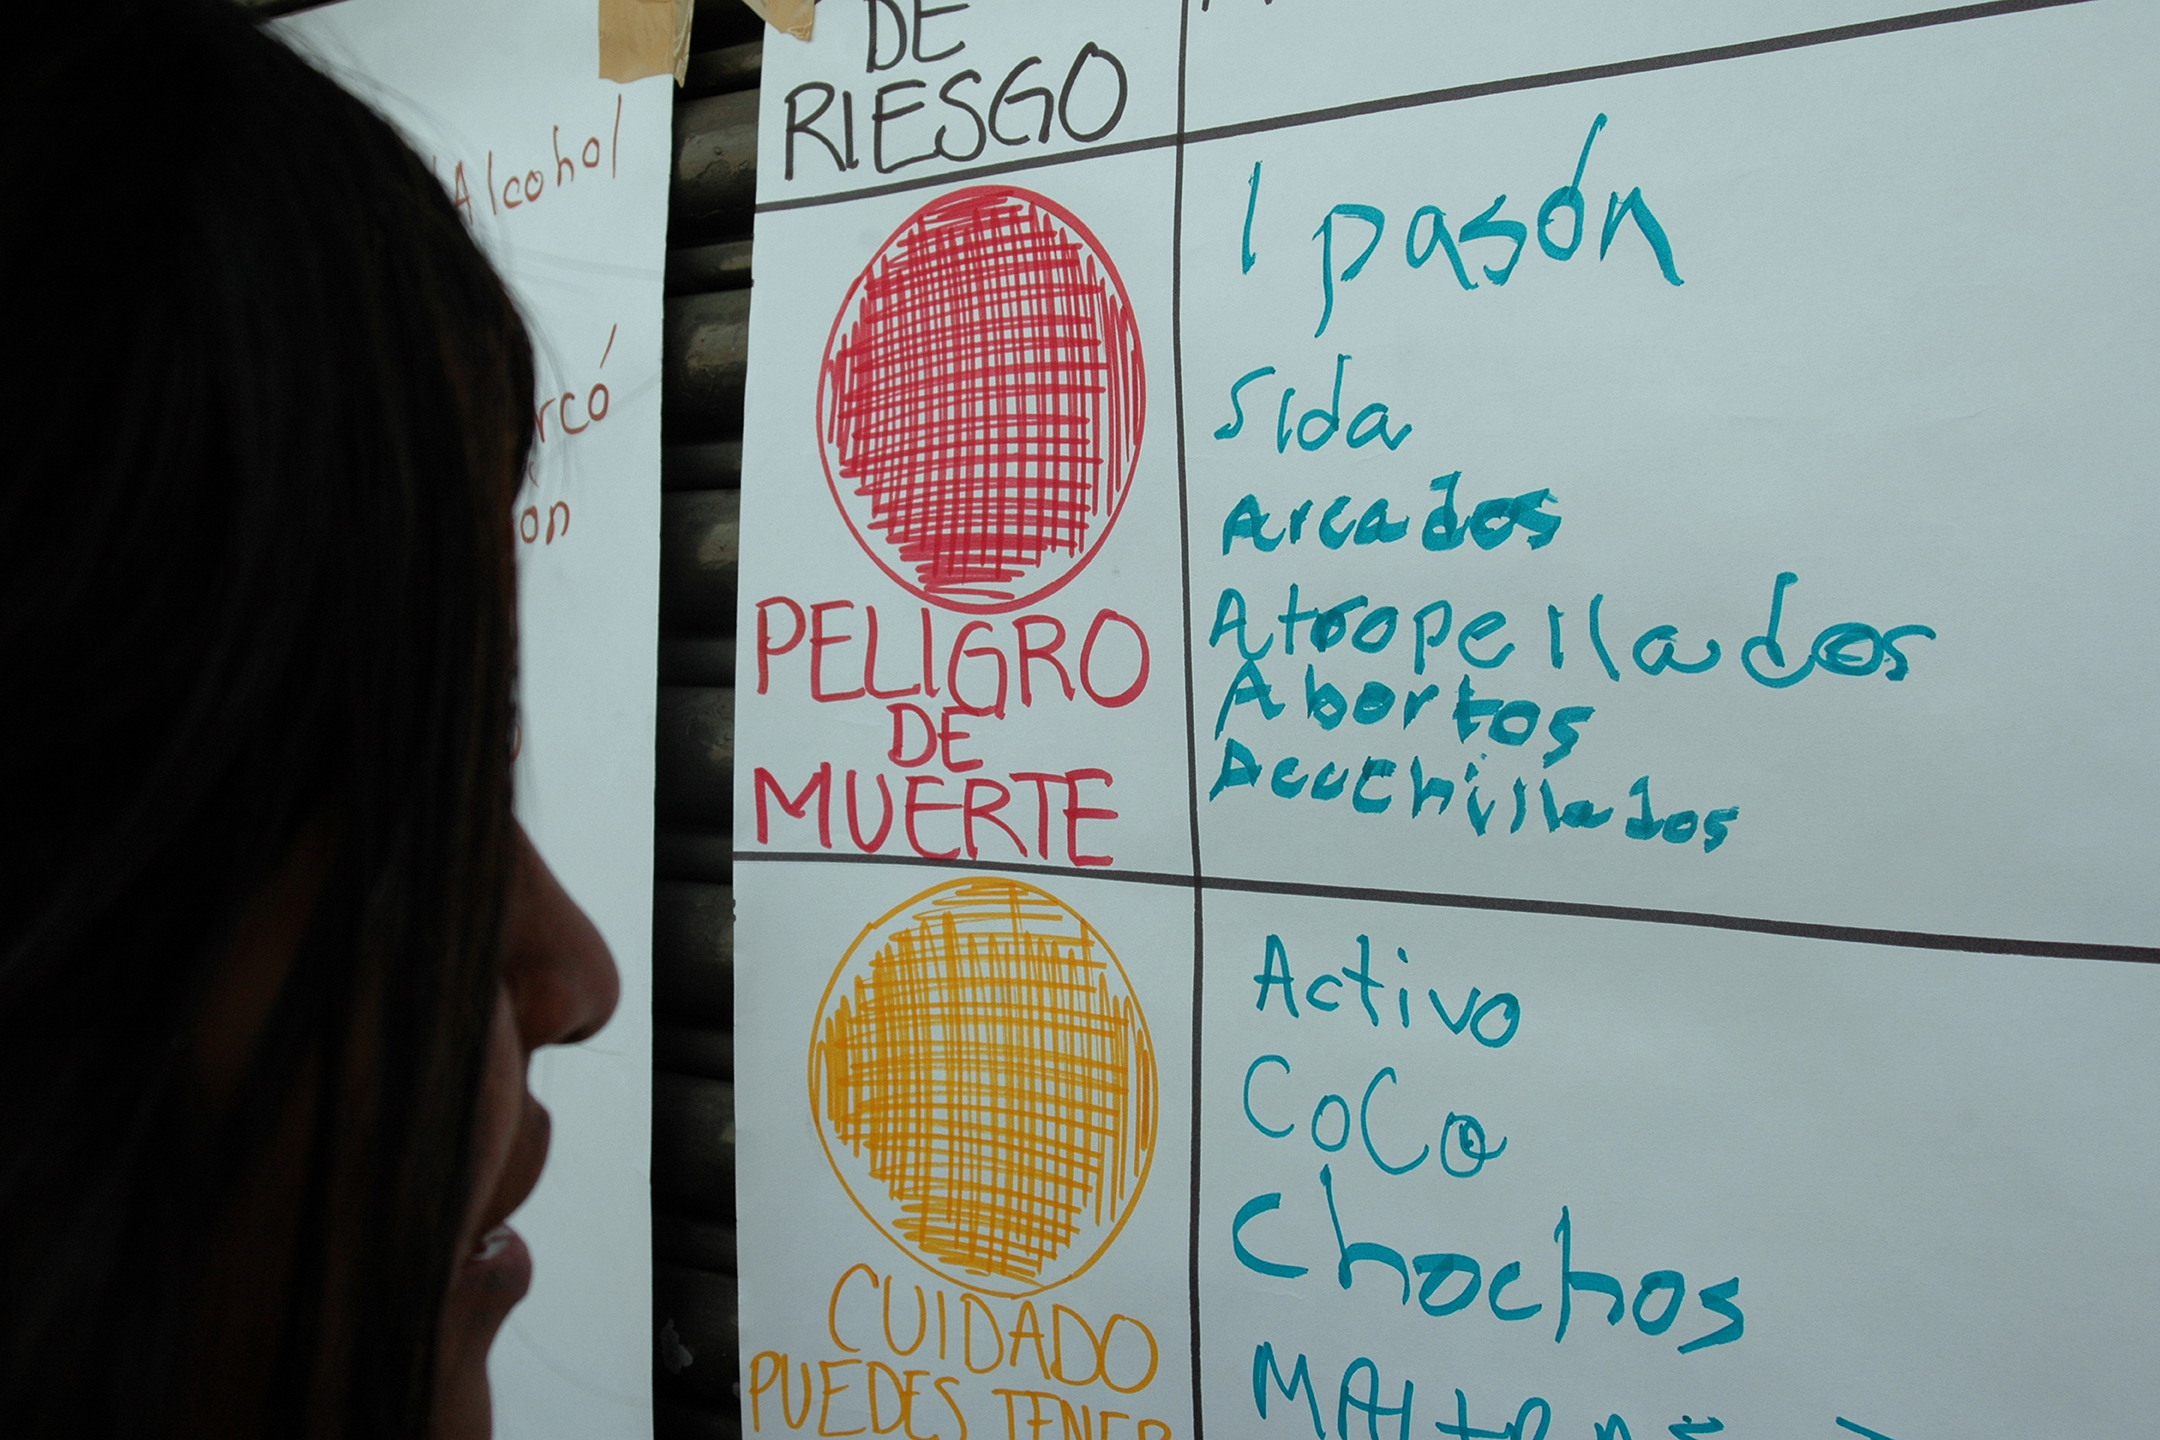 Alcohol
DE
RIESGO
PELIGRO
DE
MUERTE
1 pasón
Sida
Arcados
Atropellados
Abortos
Acuchillados
CUIDADO
PUEDES TENER
Activo
CoCo
Chochos